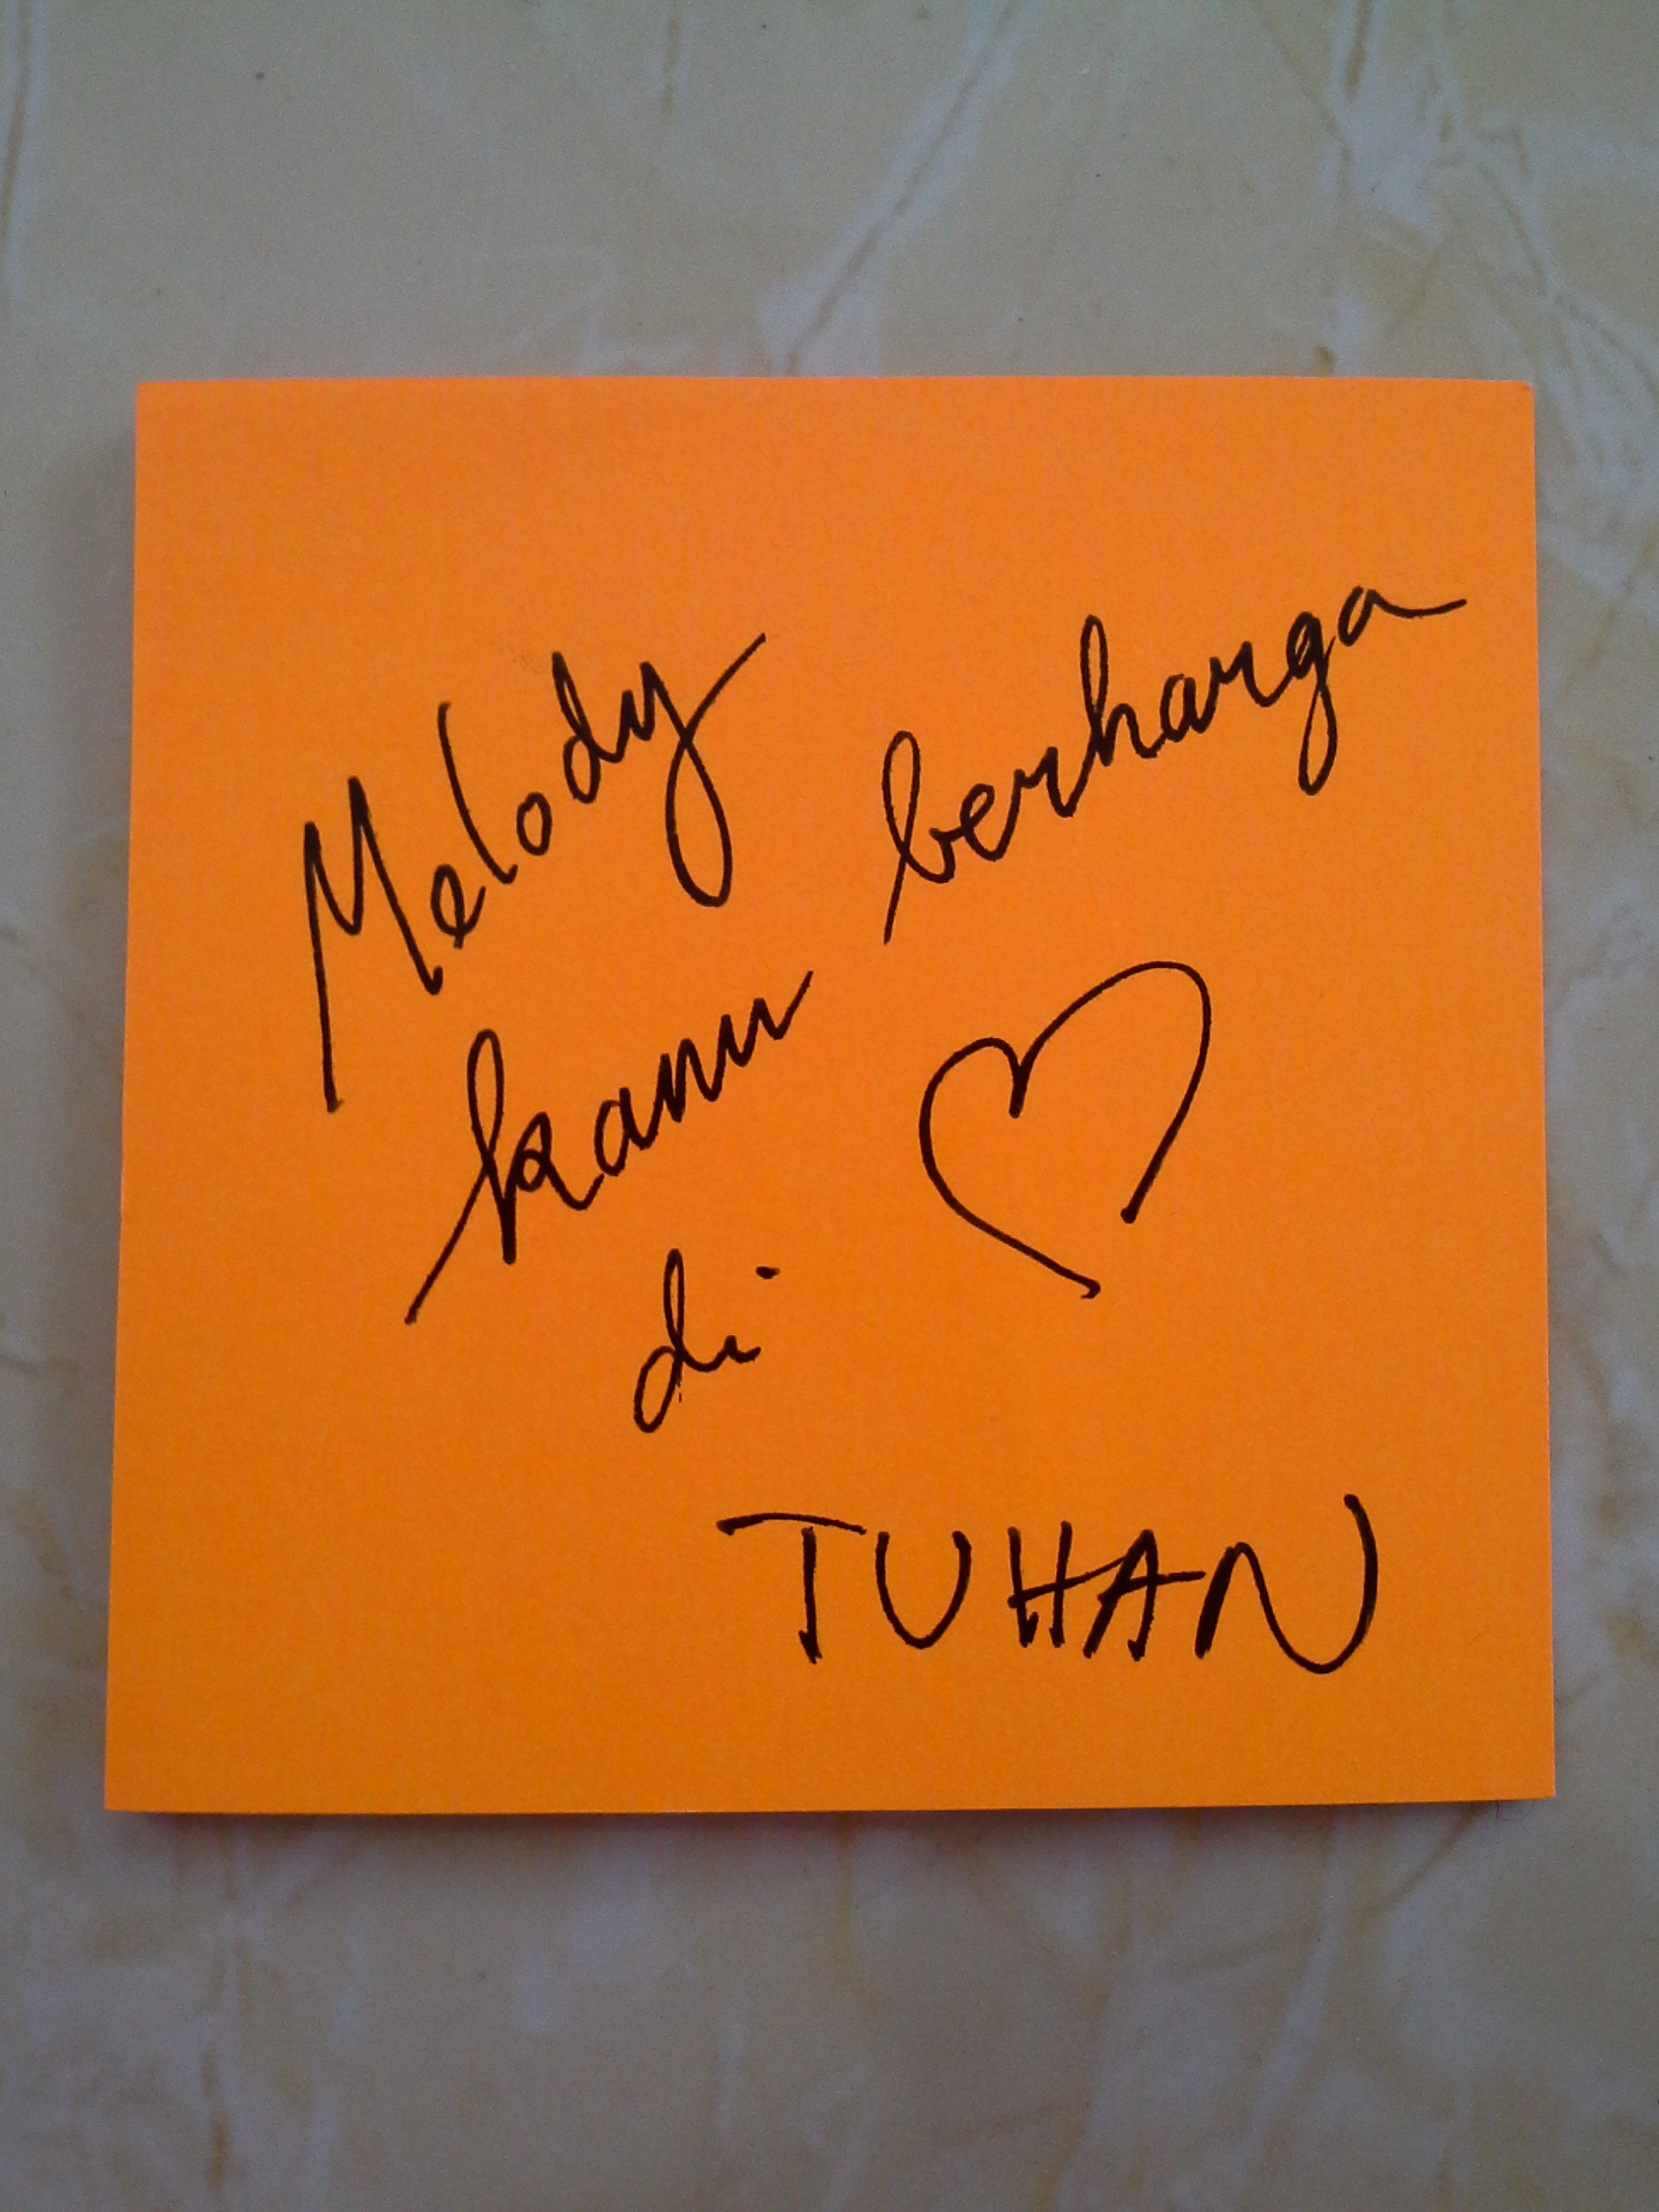 Melody
kamu berharga
di ♡
TUHAN